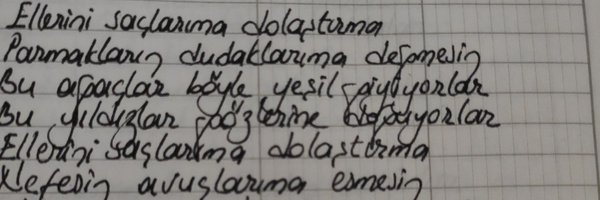 Ellerini saçlarıma dolaştırma
Parmakların dudaklarıma değmesin
Bu ağaçlar böyle yeşil giyiyorlar
Bu yıldızlar gözlerine
Ellerini saçlarıma dolaştırma
Nefesin avuçlarıma esmesin